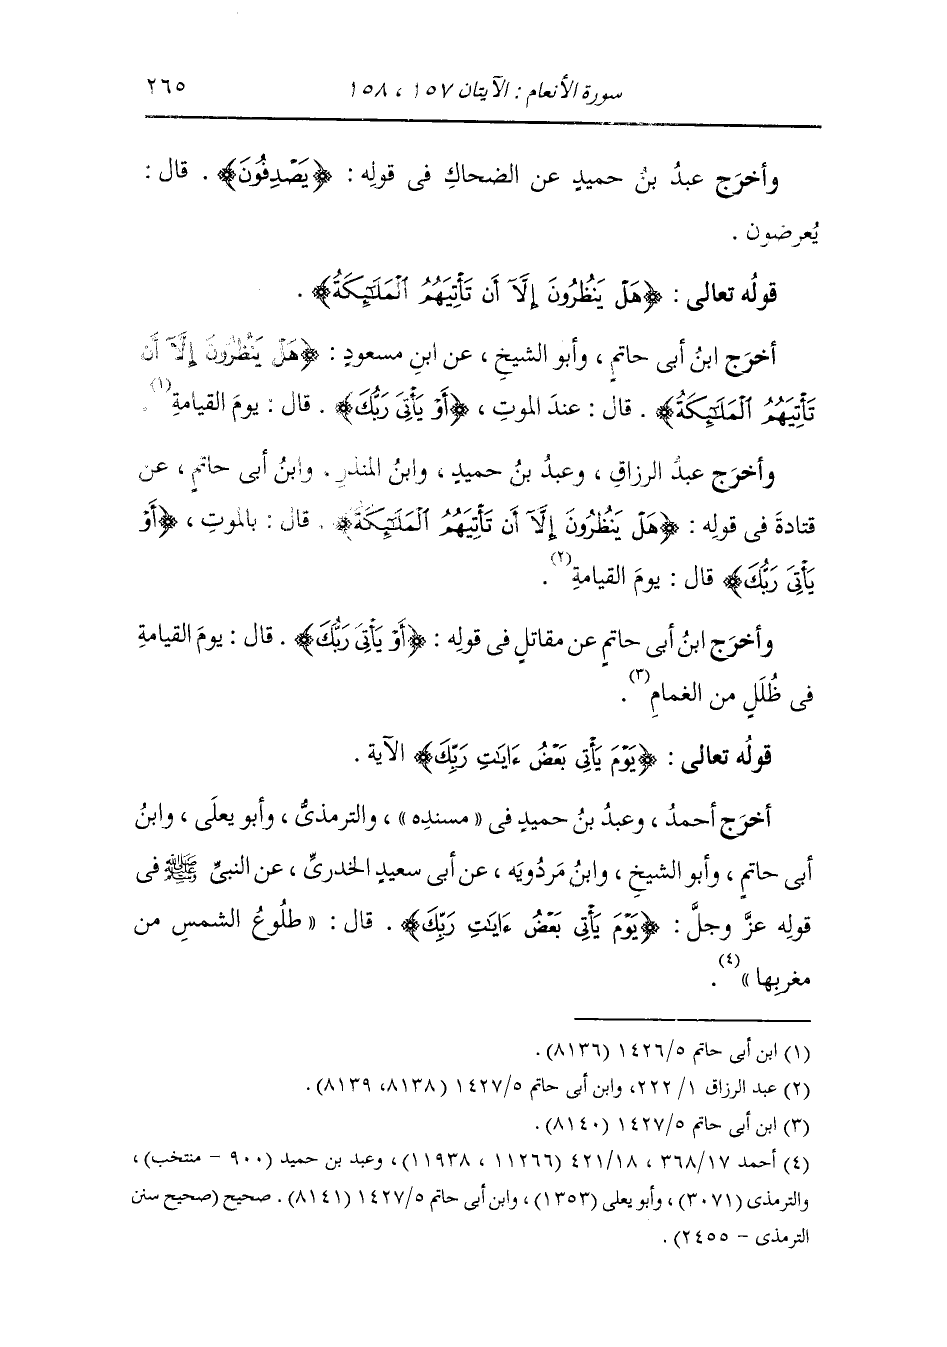 سورة الأنعام : الآيتان ١٥٧ ، ١٥٨
٢٦٥
وأخرَج عبدُ بنُ حميدٍ عن الضحاكِ فى قولِه : ﴿يَصْدِفُونَ﴾ . قال :
يُعرضون .
قولُه تعالى : ﴿هَلْ يَنظُرُونَ إِلَّآ أَن تَأْتِيَهُمُ ٱلْمَلَـٰٓئِكَةُ﴾ .
أخرَج ابنُ أبى حاتمٍ ، وأبو الشيخِ ، عن ابنِ مسعودٍ : ﴿هَلْ يَنظُرُونَ إِلَّآ أَن
تَأْتِيَهُمُ ٱلْمَلَـٰٓئِكَةُ﴾ . قال : عندَ الموتِ ، ﴿أَوْ يَأْتِىَ رَبُّكَ﴾ . قال : يومَ القيامةِ(١) .
وأخرَج عبدُ الرزاقِ ، وعبدُ بنُ حميدٍ ، وابنُ المنذرِ ، وابنُ أبى حاتمٍ ، عن
قتادةَ فى قولِه : ﴿هَلْ يَنظُرُونَ إِلَّآ أَن تَأْتِيَهُمُ ٱلْمَلَـٰٓئِكَةُ﴾ . قال : بالموتِ ، ﴿أَوْ
يَأْتِىَ رَبُّكَ﴾ قال : يومَ القيامةِ(٢) .
وأخرَج ابنُ أبى حاتمٍ عن مقاتلٍ فى قولِه : ﴿أَوْ يَأْتِىَ رَبُّكَ﴾ . قال : يومَ القيامةِ
فى ظُلَلٍ من الغمامِ(٣) .
قولُه تعالى : ﴿يَوْمَ يَأْتِى بَعْضُ ءَايَـٰتِ رَبِّكَ﴾ الآية .
أخرَج أحمدُ ، وعبدُ بنُ حميدٍ فى « مسندِه » ، والترمذىُّ ، وأبو يعلَى ، وابنُ
أبى حاتمٍ ، وأبو الشيخِ ، وابنُ مَردُويَه ، عن أبى سعيدٍ الخدرىِّ ، عن النبىِّ ﷺ فى
قولِه عزَّ وجلَّ : ﴿يَوْمَ يَأْتِى بَعْضُ ءَايَـٰتِ رَبِّكَ﴾ . قال : « طلُوعُ الشمسِ من
مغربِها »(٤) .
(١) ابن أبى حاتم ١٤٢٦/٥ (٨١٣٦) .
(٢) عبد الرزاق ١/ ٢٢٢، وابن أبى حاتم ١٤٢٧/٥ (٨١٣٨، ٨١٣٩) .
(٣) ابن أبى حاتم ١٤٢٧/٥ (٨١٤٠) .
(٤) أحمد ٣٦٨/١٧ ، ٤٢١/١٨ (١١٢٦٦ ، ١١٩٣٨) ، وعبد بن حميد (٩٠٠ – منتخب) ،
والترمذى (٣٠٧١) ، وأبو يعلى (١٣٥٣) ، وابن أبى حاتم ١٤٢٧/٥ (٨١٤١) . صحيح (صحيح سنن
الترمذى – ٢٤٥٥) .